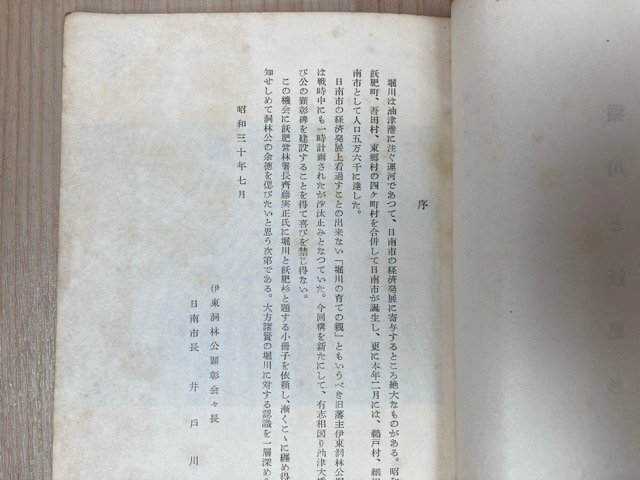 序
堀川は油津港に注ぐ運河であつて、日南市の経済発展に寄与するところ絶大なものがある。昭
飫肥町、吾田村、東郷村の四ケ町村を合併して日南市が誕生し、更に本年二月には、鵜戸村、細
南市として人口五万六千に達した。
日南市の経済発展上看過すことの出来ない「堀川の育ての親」ともいうべき旧藩主伊東洞林公
は戦時中にも一時計画されたが沙汰止みとなつていた。今回構を新たにして、有志相図り油津大
び公の顕彰碑を建設することを得て喜びを禁じ得ない。
この機会に飫肥営林署長齊藤実正氏に堀川と飫肥杉と題する小冊子を依頼し、漸くこゝに纏め得
知せしめて洞林公の余徳を偲びたいと思う次第である。大方諸賢の堀川に対する認識を一層深め
昭和三十年七月
伊東洞林公顕彰会々長
日南市長 井戸川
堀川と飫肥杉